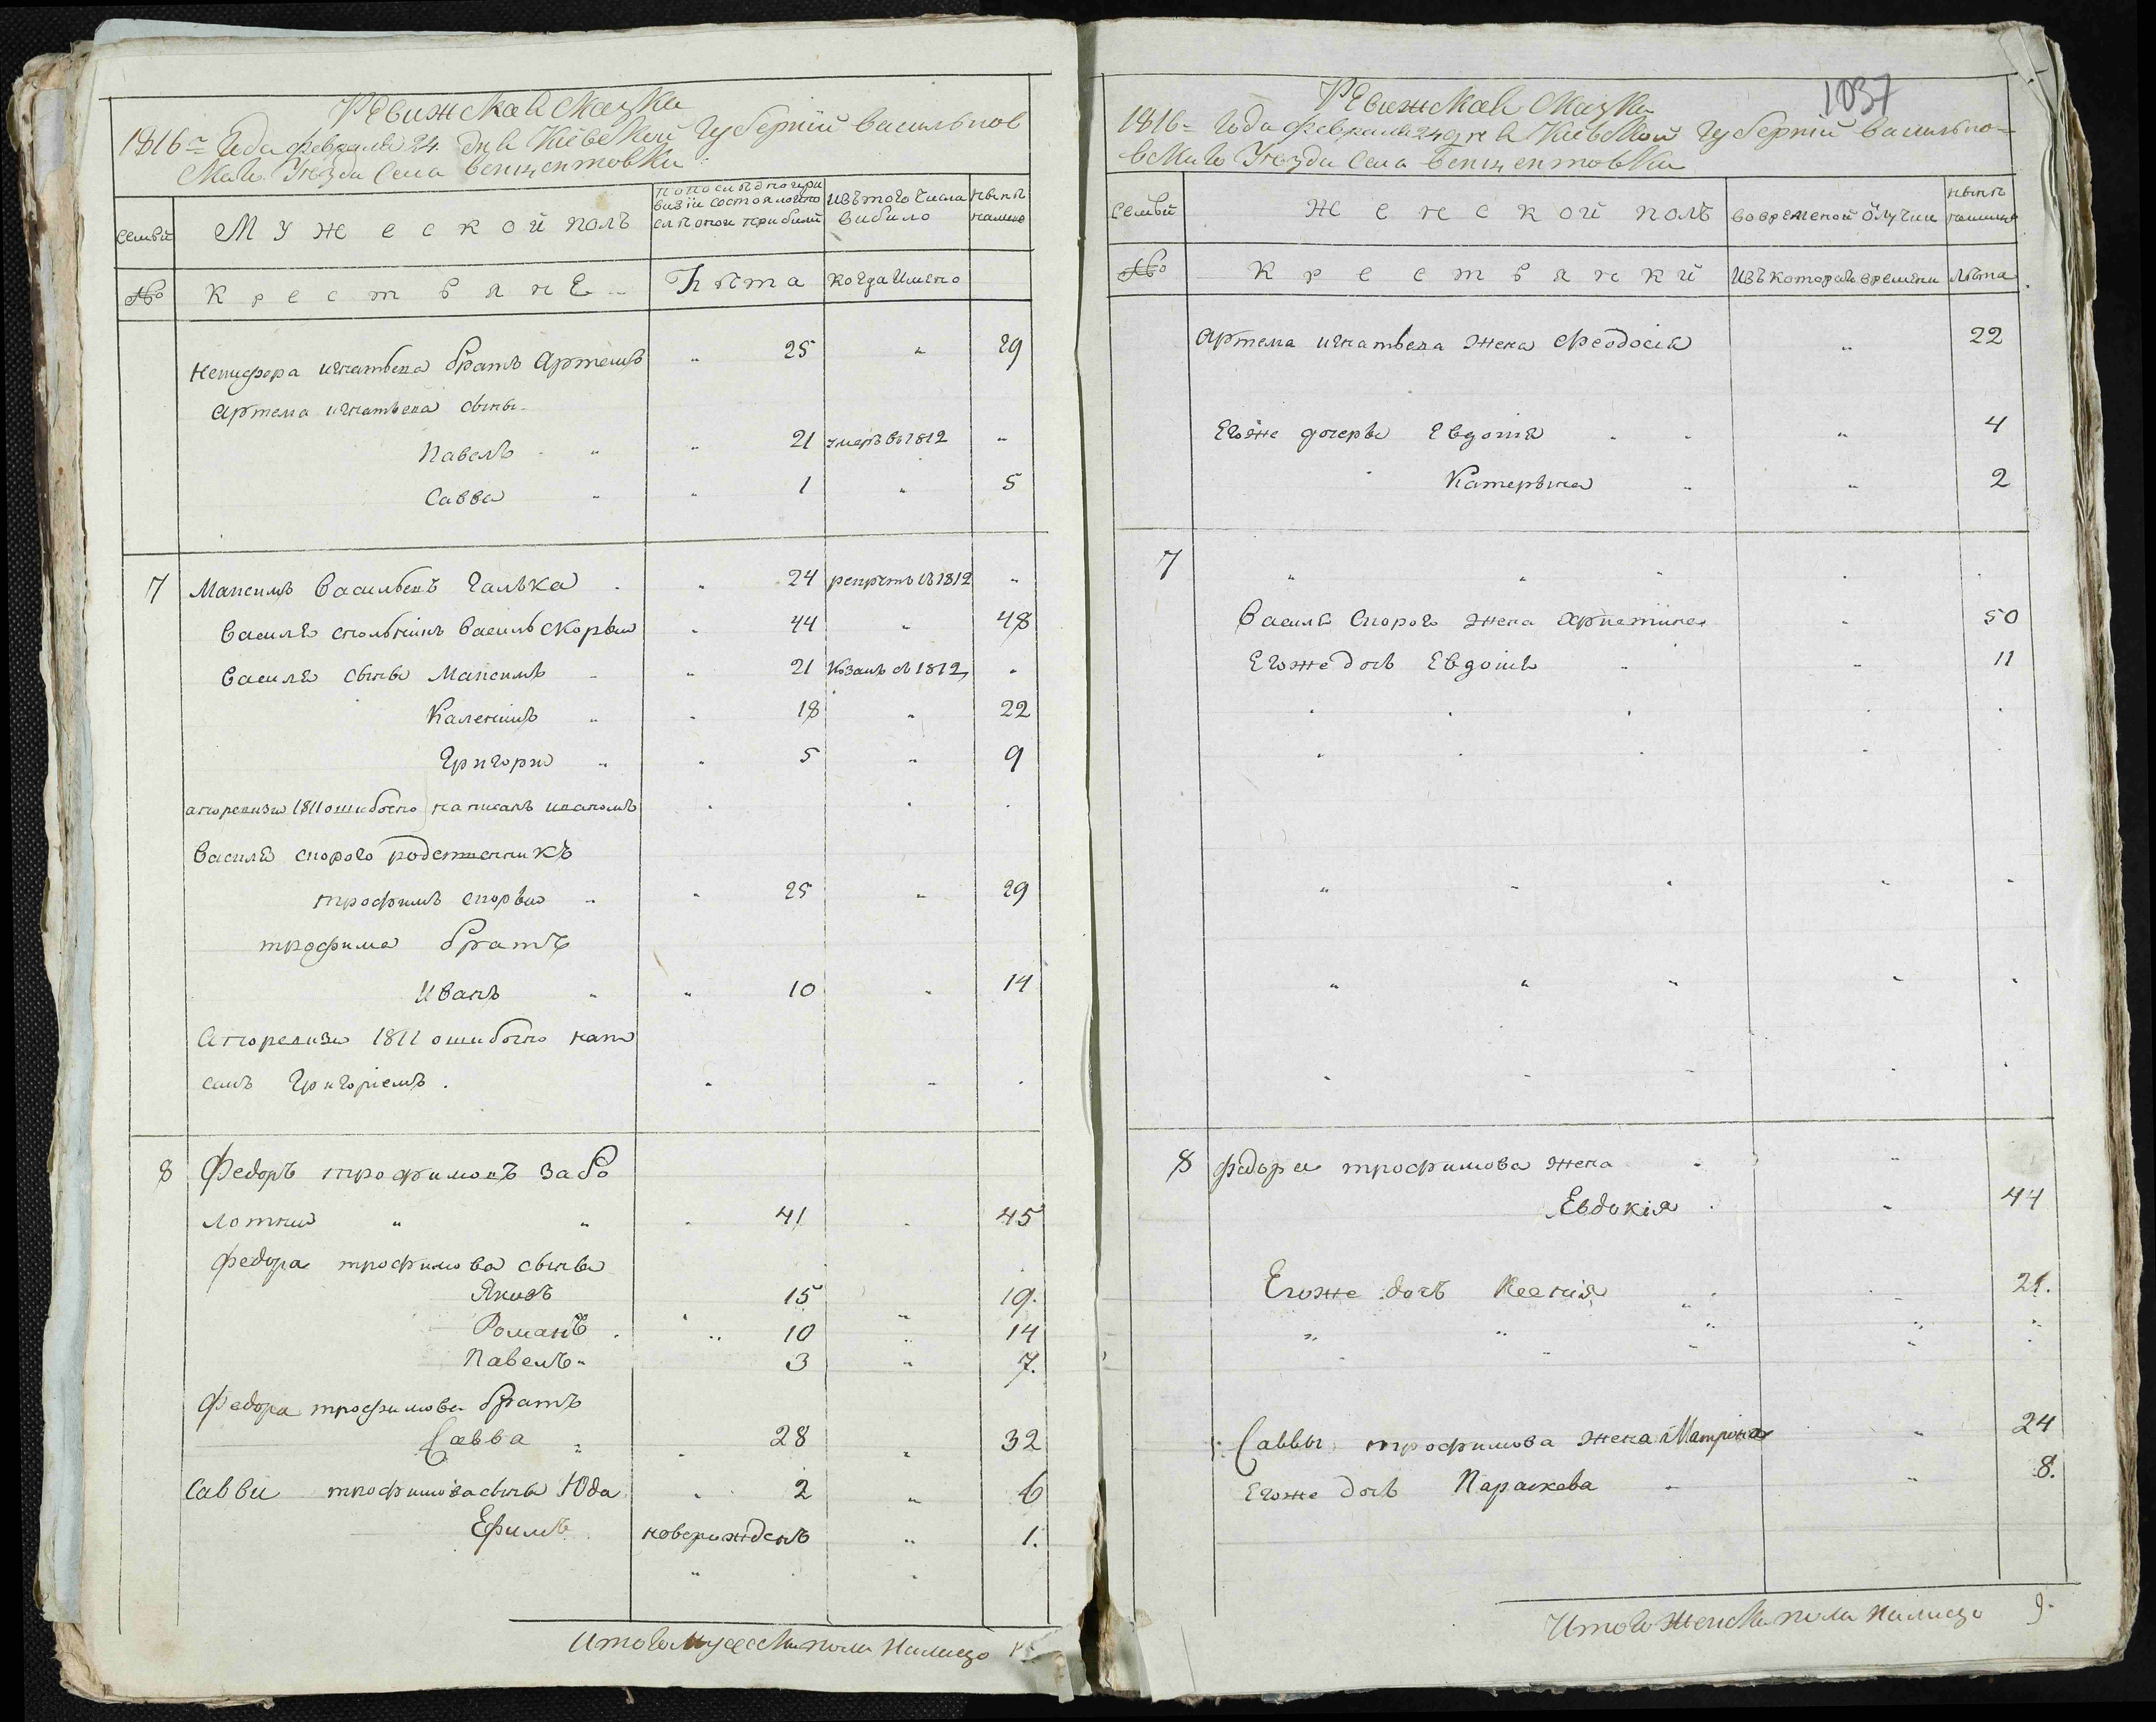 Ревижская Сказка
1816 = Года февраля 24. дня Кіевской Губерніи васильков
скаго Уезда Села венцентовки
семьи
Мужеской полъ
попоследнеи ри
визіи состояло ипо
сле оной прибыли
Изътого числа
выбыло
ныне
налицо
№
Крестьяне
Лѣта
когда Имено
Неничфора игнатьева братъ Артемъ " 25 " 29
Артема игнатьева сыны
Павелъ " " 21 умеръ въ 1812 "
Савва " " 1 " 5
7 Максимъ Васильевъ Галька " 24 рекрутъ въ 1812 "
Василъ Скорый " 44 " 48
Василя сыны Максимъ " 21 Козакъ съ 1812 "
Каленикъ " " 18 " 22
Григори " " 5 " 9
а по ревизи 1811 ошибочно написанъ иваномъ
Василя скорого родственникъ
трофимъ скорый " " 25 " 29
трофима братъ
Иванъ " " 10 " 14
А по ревизи 1811 ошибочно напи
санъ Григоріемъ.
8 Федоръ трофимовъ Забо
лотни " " 41 45
Федора трофимова сыны
Яковъ 15 19.
Романъ 10 14
Павелъ 3 7.
Федора трофимова братъ
Савва " 28 " 32
Савви трофимова сыны Юда " 2 " 6
Ефимъ новорожденъ " 1.
Итого мужеска пола налицо
1037
Ревижская Сказка
1816 = Года февраля 24 дня Кіевской Губерніи Василько-
вскаго Уезда Села венцентовки
семьи
Женской полъ
во временой отлучки
ныне
налицо
№
Крестьянки
Изъ которого времяни
Лѣта
Артема игнатьева жена Феодосія " 22
Егоже дочеры Евдокія " 4
Катерына " " 2
7 " " " "
Василя Скорого жена Христина " 50
Егоже дочь Евдокия " " 11
8 Федора трофимова жена "
Евдокія " 44
Егоже дочь Ксенія " 21.
Саввы трофимова жена Матрона " 24
Егоже дочь Параскева " 8.
Итого Женска пола налицо 9.